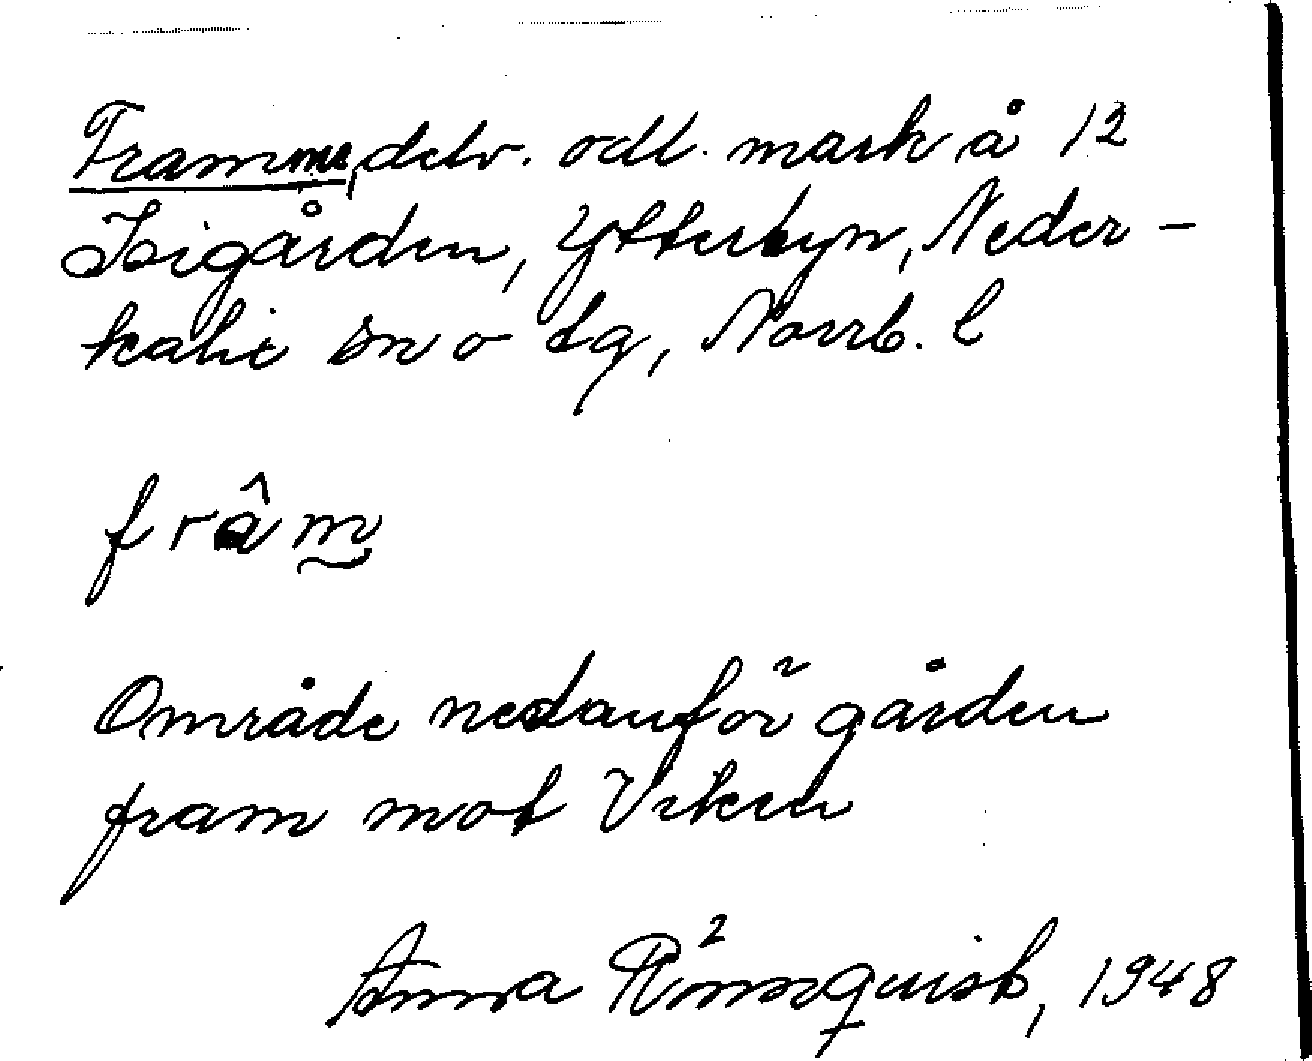 Framme, delv. odl. mark å 12
Isigården, Ytterbyn, Neder-
kalix sn o tg, Norrb. l
frâm
Område nedanför gården
fram mot Viken
Anna Rönnquist, 1948